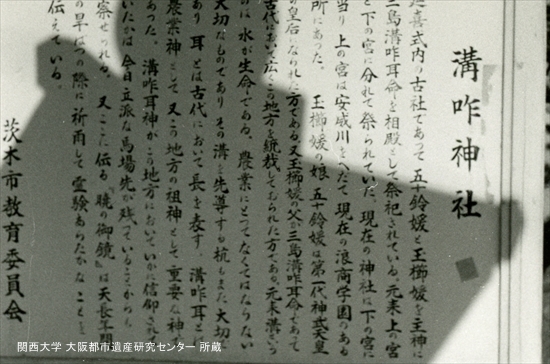 溝咋神社
延喜式内の古社であって五十鈴媛と玉櫛媛を主神に
三島溝咋耳命を相殿として祭祀されている。元来上の宮
と下の宮に分れて祭られていた。現在の神社は下の宮
当り上の宮は安威川をへだて、現在の浪商学園のある
所にあった。 玉櫛媛の娘、五十鈴媛は第一代神武天皇
の皇后になられた方である。又玉櫛媛の父が三島溝咋耳命であって
古代において広くこの地方を統裁しておられた方である。元来溝という
のは、水が生命である。農業にとってなくてはならない
大切なものであり その溝を先導する杭もまた大切で
あり 耳とは古代において長を表す。 溝咋耳と
農業神として 又この地方の祖神として 重要な神で
あった。 溝咋耳神がこの地方においていかに信仰され
いたかは今日立派な馬場先が残っていることからも
察せられる。 又ここに伝る『暁の御鏡』は天長年間
の旱ばつの際に祈雨して霊験あらたかなことを
伝えている。
茨木市教育委員会
関西大学 大阪都市遺産研究センター 所蔵